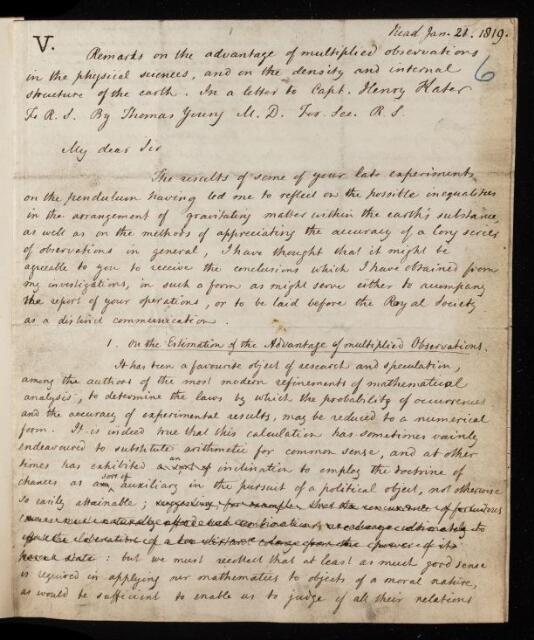 Read Jan. 21. 1819.
V.
6
Remarks on the advantage of multiplied observations
in the physical sciences, and on the density and internal
structure of the earth. In a letter to Capt. Henry Kater
F. R. S. By Thomas Young M. D. For. Sec. R. S.
My dear Sir
The results of some of your late experiments
on the pendulum having led me to reflect on the possible inequalities
in the arrangement of gravitating matter within the earth's substance,
as well as on the methods of appreciating the accuracy of a long series
of observations in general, I have thought that it might be
agreeable to you to receive the conclusions which I have obtained from
my investigations, in such a form as might serve either to accompany
the report of your operations, or to be laid before the Royal Society
as a distinct communication.
1. On the Estimation of the Advantage of multiplied Observations.
It has been a favourite object of research and speculation,
among the authors of the most modern refinements of mathematical
analysis, to determine the laws by which the probability of occurrences
and the accuracy of experimental results, may be reduced to a numerical
form. It is indeed true that this calculation has sometimes vainly
endeavoured to substitute arithmetic for common sense, and at other
times has exhibited an inclination to employ the doctrine of
chances as a sort of auxiliary in the pursuit of a political object, not otherwise
so easily attainable; suggesting, for example, that the of fortuitous
causes must naturally afford such to
the of a too distant change from the power of its
: but we must recollect that at least as much good sense
is required in applying our mathematics to objects of a moral nature,
as would be sufficient to enable us to judge of all their relations